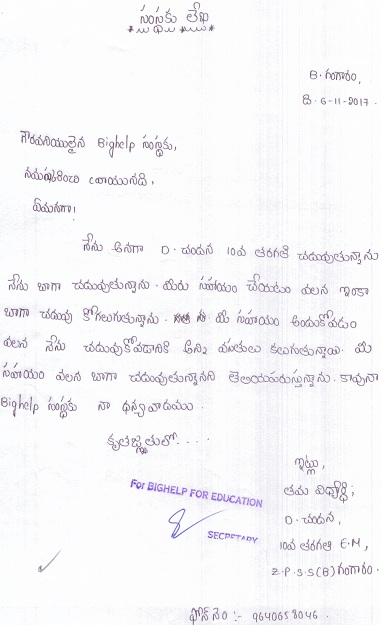 సంస్థకు లేఖ
B. గంగారం,
ది. 6-11-2017.
గౌరవనీయులైన Bighelp సంస్థకు,
నమస్కరించి వ్రాయునది,
ఏమనగా!
నేను అనగా D. చందన 10వ తరగతి చదువుతున్నాను
నేను బాగా చదువుతున్నాను. మీరు సహాయం చేయటం వలన ఇంకా
బాగా చదువు కోగలుగుతున్నాను. మీ సహాయం అందుకోవడం
వలన నేను చదువుకోవడానికి అన్ని వసతులు కలుగుతున్నాయి. మీ
సహాయం వలన బాగా చదువుతున్నానని తెలియపరుస్తున్నాను. కావునా
Bighelp సంస్థకు నా ధన్యవాదములు.
కృతజ్ఞతలో....
ఇట్లు,
తమ విద్యార్థి;
For BIGHELP FOR EDUCATION
D. చందన,
SECRETARY
10వ తరగతి E.M,
Z.P.S.S(B) గంగారం.
ఫోన్ నెం :- 9640658046.